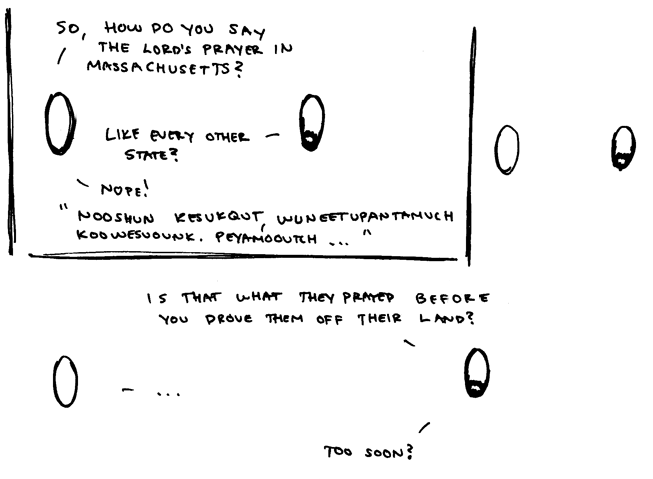 SO, HOW DO YOU SAY
THE LORD'S PRAYER IN
MASSACHUSETTS?
LIKE EVERY OTHER
STATE?
NOPE!
"NOOSHUN KESUKQUT, WUNEETUPANTAMUCH
KOOWESUOUNK. PEYAMOOUTCH ..."
IS THAT WHAT THEY PRAYED BEFORE
YOU DROVE THEM OFF THEIR LAND?
...
TOO SOON?